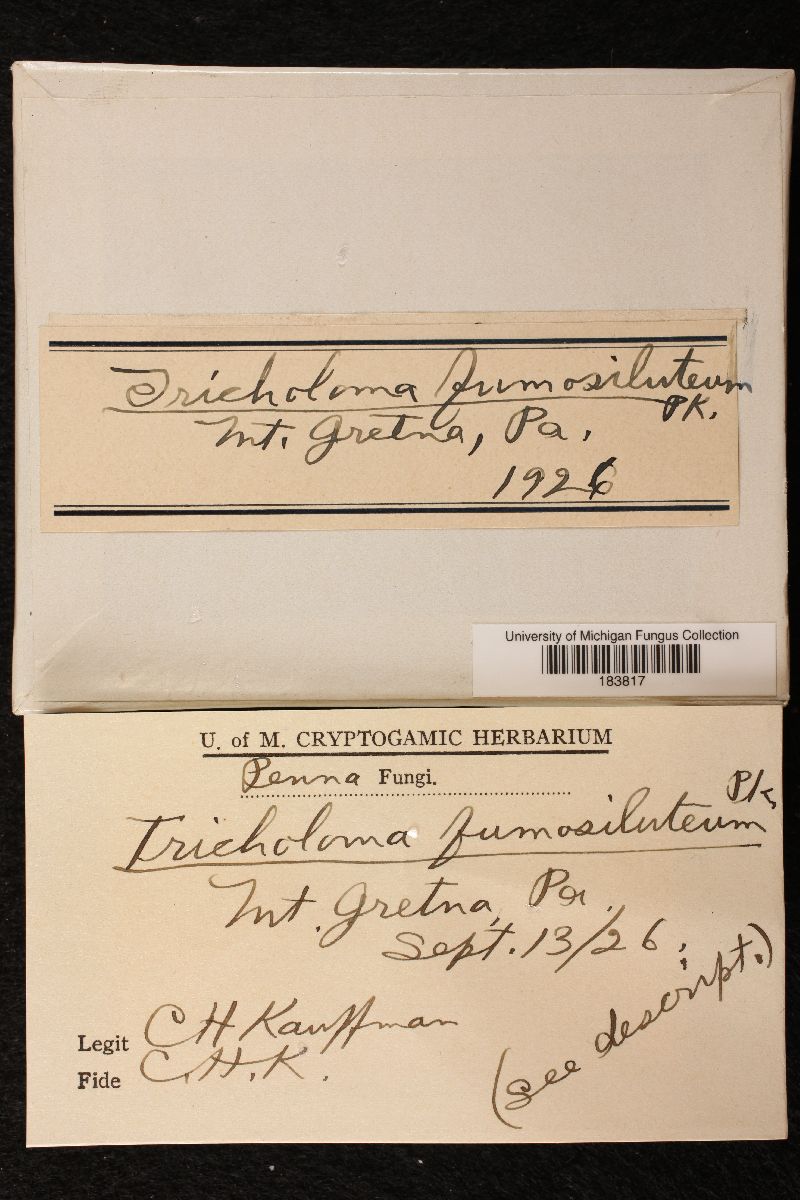 Tricholoma fumosiluteum
PK.
Mt. Gretna, Pa.
1926
University of Michigan Fungus Collection
183817
U. of M. CRYPTOGAMIC HERBARIUM
Penna Fungi.
Pk.
Tricholoma fumosiluteum
Mt. Gretna, Pa.
Sept. 13/26.
(see descript.)
Legit C H Kauffman
Fide C.H.K.